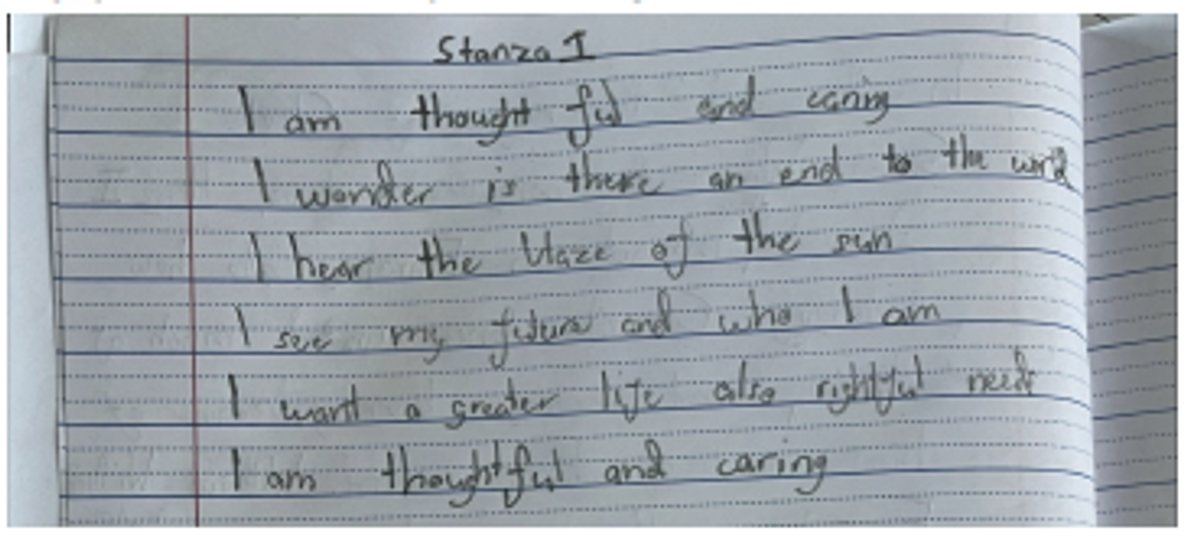 Stanza I
I am thought ful and caring
I wonder is there an end to the world
I hear the blaze of the sun
I see my future and who I am
I want a greater life also rightful needs
I am thoughtful and caring